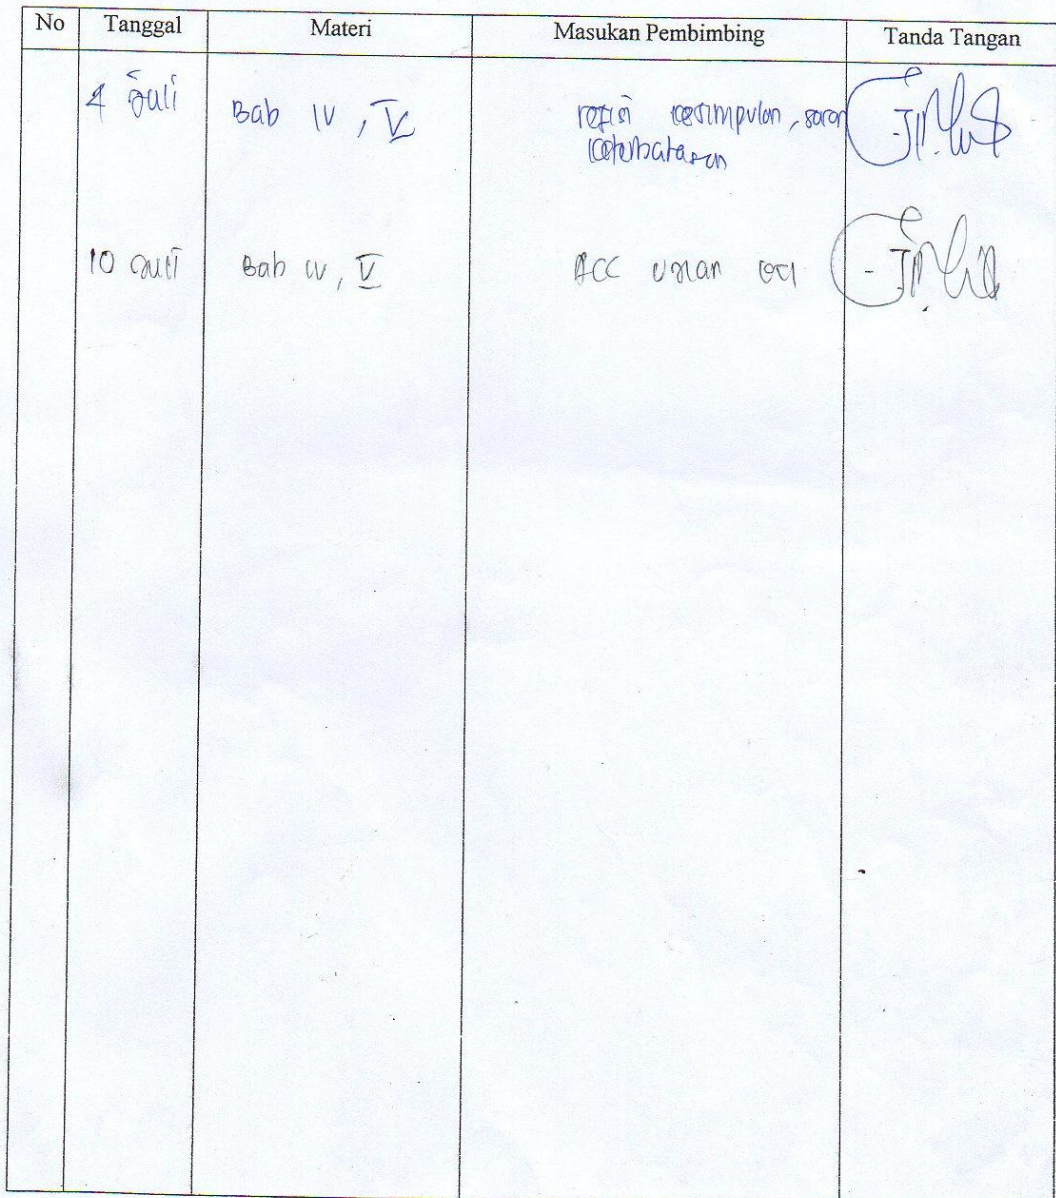 No Tanggal Materi Masukan Pembimbing Tanda Tangan
4 Juli Bab IV, V kesimpulan, saran
keterbatasan
10 Juli Bab IV, V ACC ujian